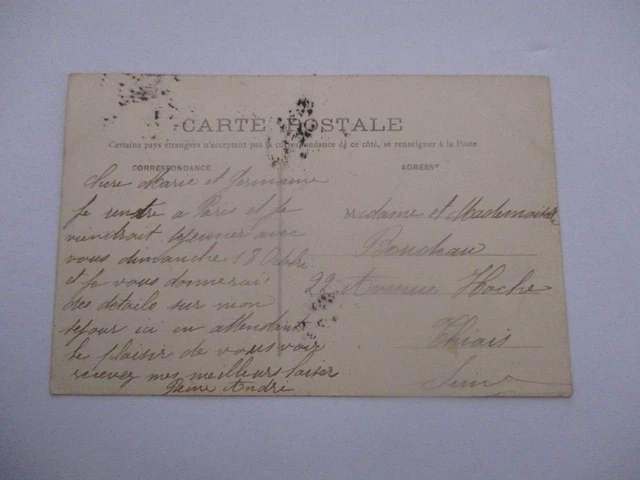 CARTE POSTALE
Certains pays étrangers n'acceptant pas la correspondance de ce côté, se renseigner à la Poste
CORRESPONDANCE
Chere Marie et Germaine
Je rentre a Paris et je
viendrait dejeuner avec
vous dimanche 18 Octobre
et je vous donnerai
des details sur mon
sejour ici en attendant
le plaisir de vous voir
recevez mes meilleurs baiser
André
ADRESSE
Madame et Mademoiselle
Boudeau
22 Avenue Hoche
Thiais
Seine